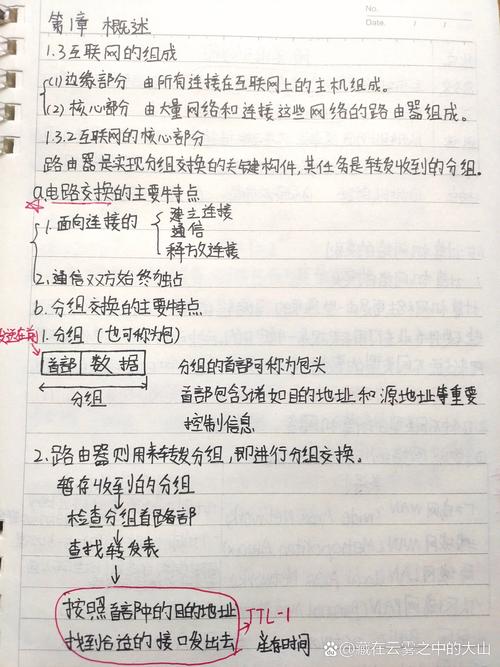 No.
Date. / /
第1章 概述
1.3 互联网的组成
(1) 边缘部分 由所有连接在互联网上的主机组成。
(2) 核心部分 由大量网络和连接这些网络的路由器组成。
1.3.2 互联网的核心部分
路由器是实现分组交换的关键构件,其任务是转发收到的分组。
a.电路交换的主要特点
1.面向连接的
建立连接
通信
释放连接
2.通信双方始终独占
b.分组交换的主要特点
发送在前
1.分组(也可称为包)
首部 数据
分组
分组的首部可称为包头
首部包含诸如目的地址和源地址等重要
控制信息
2.路由器则用来转发分组,即进行分组交换。
暂存收到的分组
检查分组首部
查找转发表
按照首部中的目的地址
找到合适的接口发出去
TTL-1
生存时间
@藏在云雾之中的大山